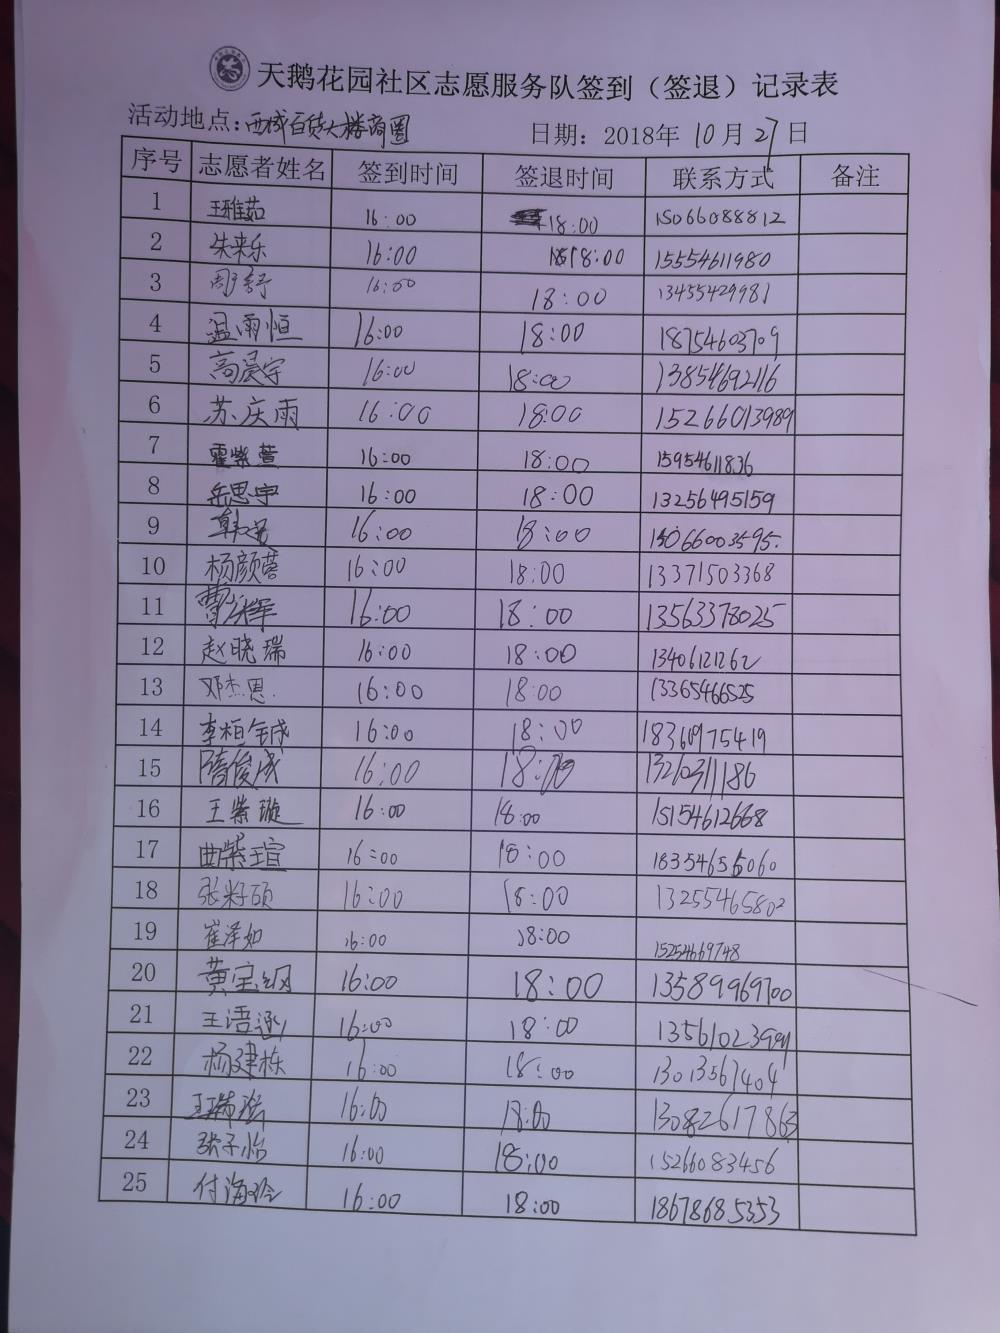 天鹅花园社区志愿服务队签到（签退）记录表
活动地点：西城百货大楼商圈 日期：2018年10月27日
序号 志愿者姓名 签到时间 签退时间 联系方式 备注
1 王雅茹 16:00 18:00 15066088812
2 朱来乐 16:00 18:00 15554611980
3 周舒 16:00 18:00 13455429981
4 温雨恒 16:00 18:00 18754603709
5 高晨宇 16:00 18:00 13854692116
6 苏庆雨 16:00 18:00 15266013989
7 霍紫萱 16:00 18:00 15954611836
8 岳思宇 16:00 18:00 13256495159
9 16:00 18:00 15066003595
10 杨颜蓉 16:00 18:00 13371503368
11 16:00 18:00 13563378025
12 赵晓瑞 16:00 18:00 13406121262
13 邓杰恩 16:00 18:00 13365466525
14 李柏钰成 16:00 18:00 18360975419
15 隋俊成 16:00 18:00 13210311186
16 王紫璇 16:00 18:00 15154612668
17 曲紫瑄 16:00 18:00 18354656060
18 张籽硕 16:00 18:00 13255465802
19 崔泽如 16:00 18:00 15254669748
20 黄宝纲 16:00 18:00 13589969700
21 王语涵 16:00 18:00
22 杨建栋 16:00 18:00 13013567404
23 16:00 18:00 13082617863
24 张子怡 16:00 18:00 15266083456
25 付海玲 16:00 18:00 18678685353